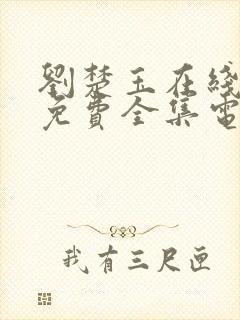 劉楚玉在綫
免費全集電
我有三尺匣